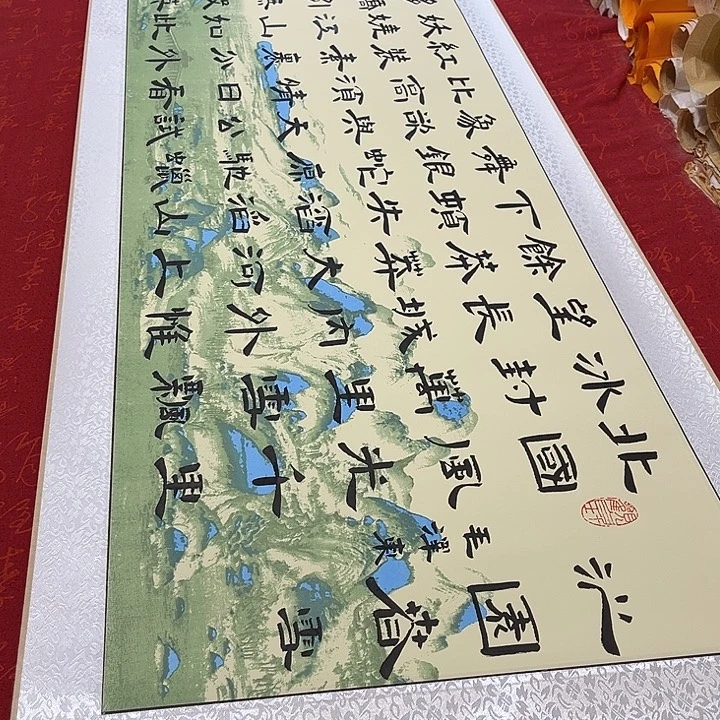 沁園春雪
毛澤東
北國風光千里
冰封萬里雪飄
望長城内外惟
餘莽莽大河上
下頓失滔滔山
舞銀蛇原馳蠟
象欲與天公試
比高須晴日看
紅裝素裹分外
妖嬈江山如此